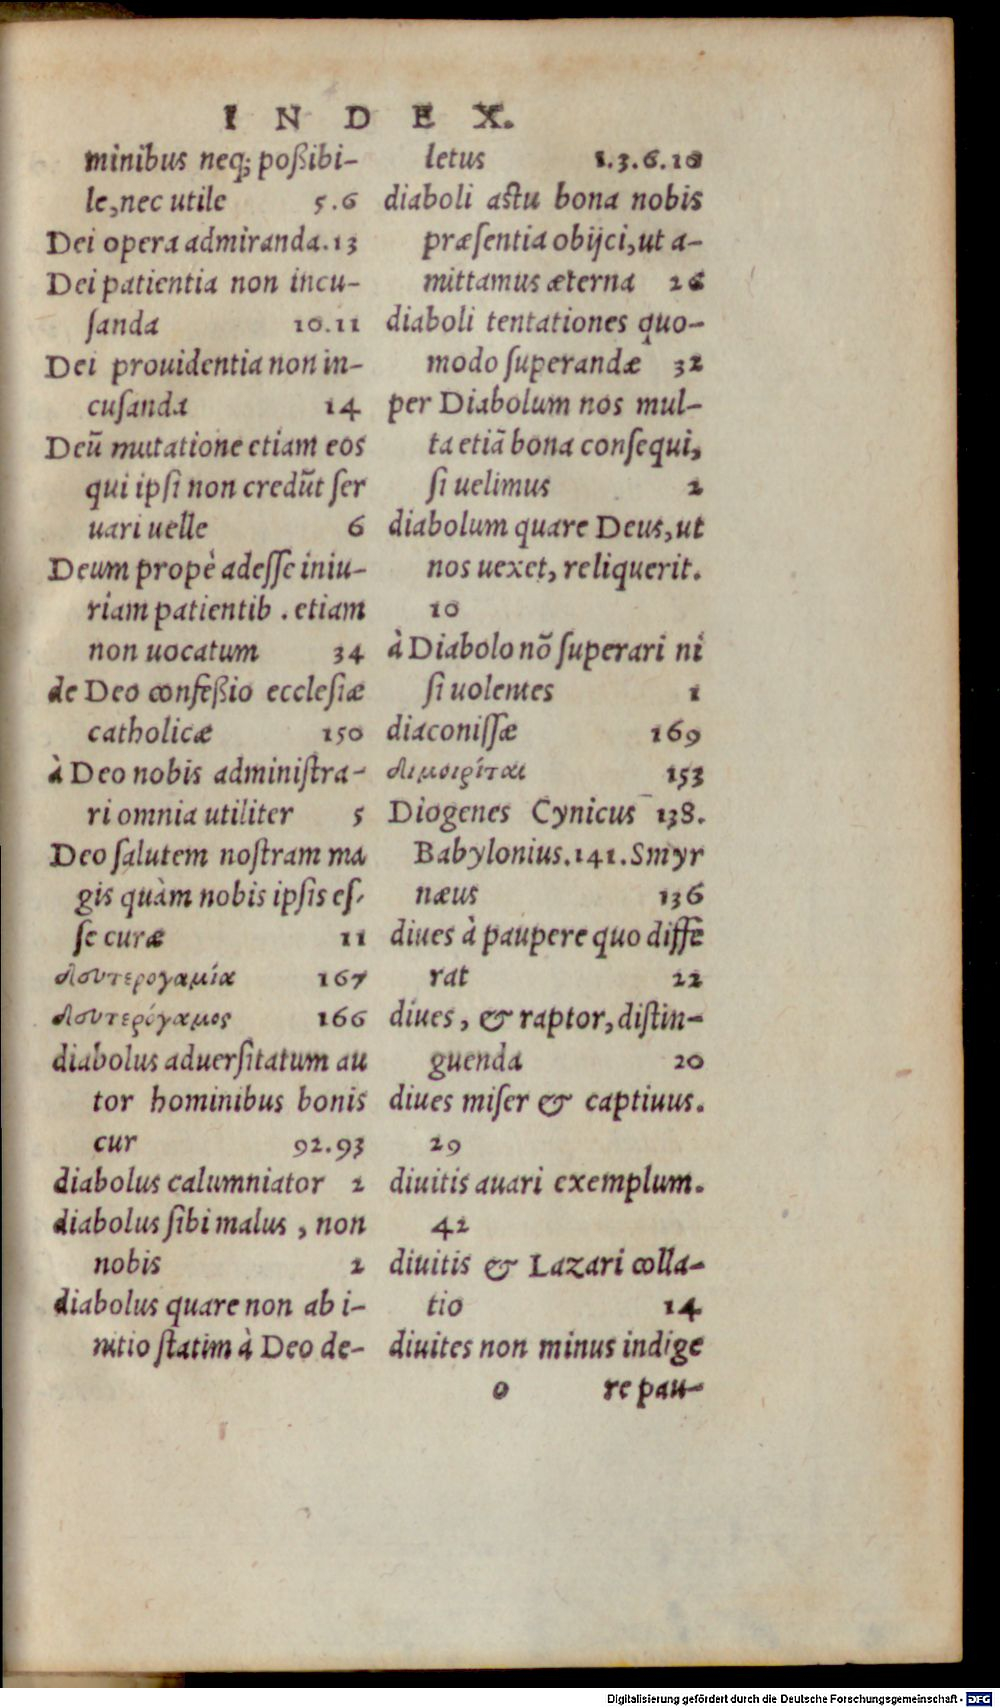 INDEX.
minibus neq; poßibi-
le, nec utile 5.6
Dei opera admiranda. 13
Dei patientia non incu-
ſanda 10.11
Dei prouidentia non in-
cuſanda 14
Deū mutatione etiam eos
qui ipſi non credūt ſer
uari uelle 6
Deum propè adeſſe iniu-
riam patientib. etiam
non uocatum 34
de Deo confeßio eccleſiæ
catholicæ 150
à Deo nobis adminiſtra-
ri omnia utiliter 5
Deo ſalutem noſtram ma
gis quàm nobis ipſis eſ-
ſe curæ 11
δευτερογαμία 167
δευτερόγαμος 166
diabolus aduerſitatum au
tor hominibus bonis
cur 92.93
diabolus calumniator 2
diabolus ſibi malus, non
nobis 2
diabolus quare non ab i-
nitio ſtatim à Deo de-
letus 1.3.6.10
diaboli aſtu bona nobis
præſentia obijci, ut a-
mittamus æterna 26
diaboli tentationes quo-
modo ſuperandæ 32
per Diabolum nos mul-
ta etiā bona conſequi,
ſi uelimus 2
diabolum quare Deus, ut
nos uexet, reliquerit.
10
à Diabolo nō ſuperari ni
ſi uolentes 1
diaconiſſæ 169
διμοιρίται 153
Diogenes Cynicus 138.
Babylonius. 141. Smyr
næus 136
diues à paupere quo diffe
rat 22
diues, & raptor, diſtin-
guenda 20
diues miſer & captiuus.
29
diuitis auari exemplum.
42
diuitis & Lazari colla-
tio 14
diuites non minus indige
o re pau-
Digitalisierung gefördert durch die Deutsche Forschungsgemeinschaft - DFG